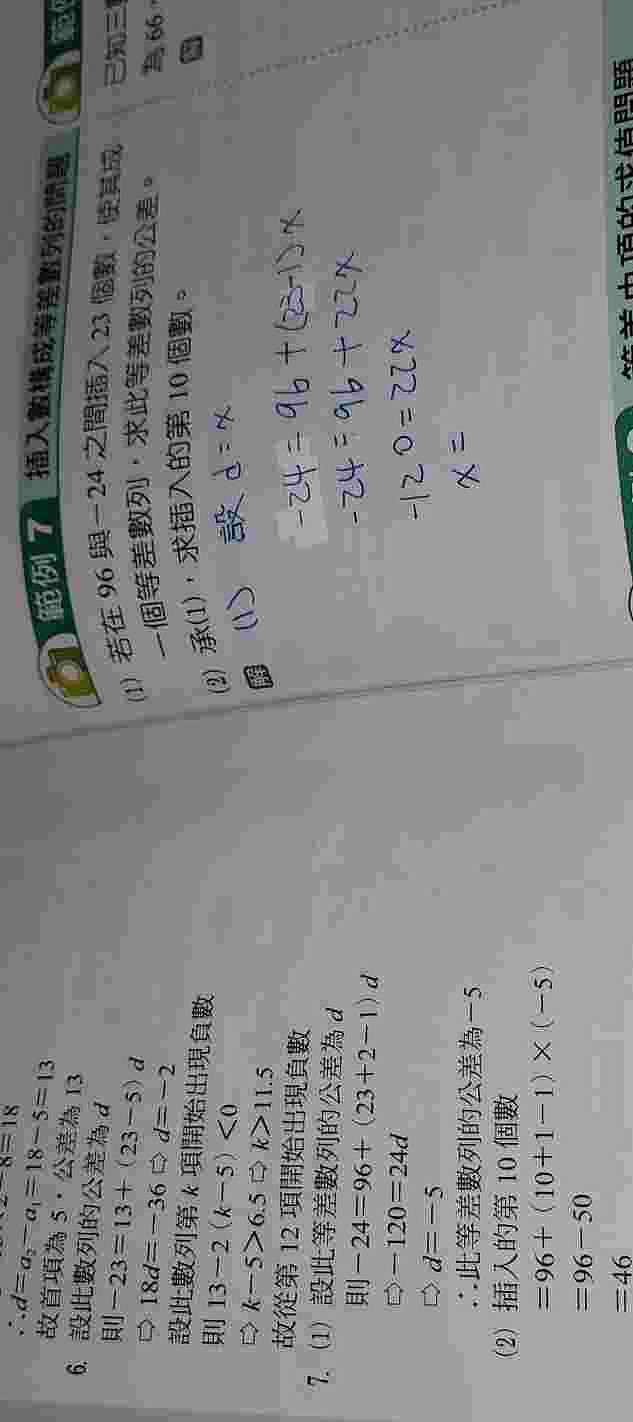 範例 7 插入數構成等差數列的問題
(1) 若在 96 與－24 之間插入 23 個數，使其成
一個等差數列，求此等差數列的公差。
(2) 承(1)，求插入的第 10 個數。
解
(1) 設 d = x
-24 = 96 + (23-1) x
-24 = 96 + 22x
-120 = 22x
x =
範例
已知三
為 66，
解
等差中項的求值問題
8=18
∴d=a₂－a₁=18－5=13
故首項為 5，公差為 13
6. 設此數列的公差為 d
則－23=13+(23－5)d
⇨ 18d=－36 ⇨ d=－2
設此數列第 k 項開始出現負數
則 13－2(k－5)<0
⇨ k－5>6.5 ⇨ k>11.5
故從第 12 項開始出現負數
7. (1) 設此等差數列的公差為 d
則－24=96+(23+2－1)d
⇨－120=24d
⇨ d=－5
∴此等差數列的公差為－5
(2) 插入的第 10 個數
=96+(10+1－1)×(－5)
=96－50
=46